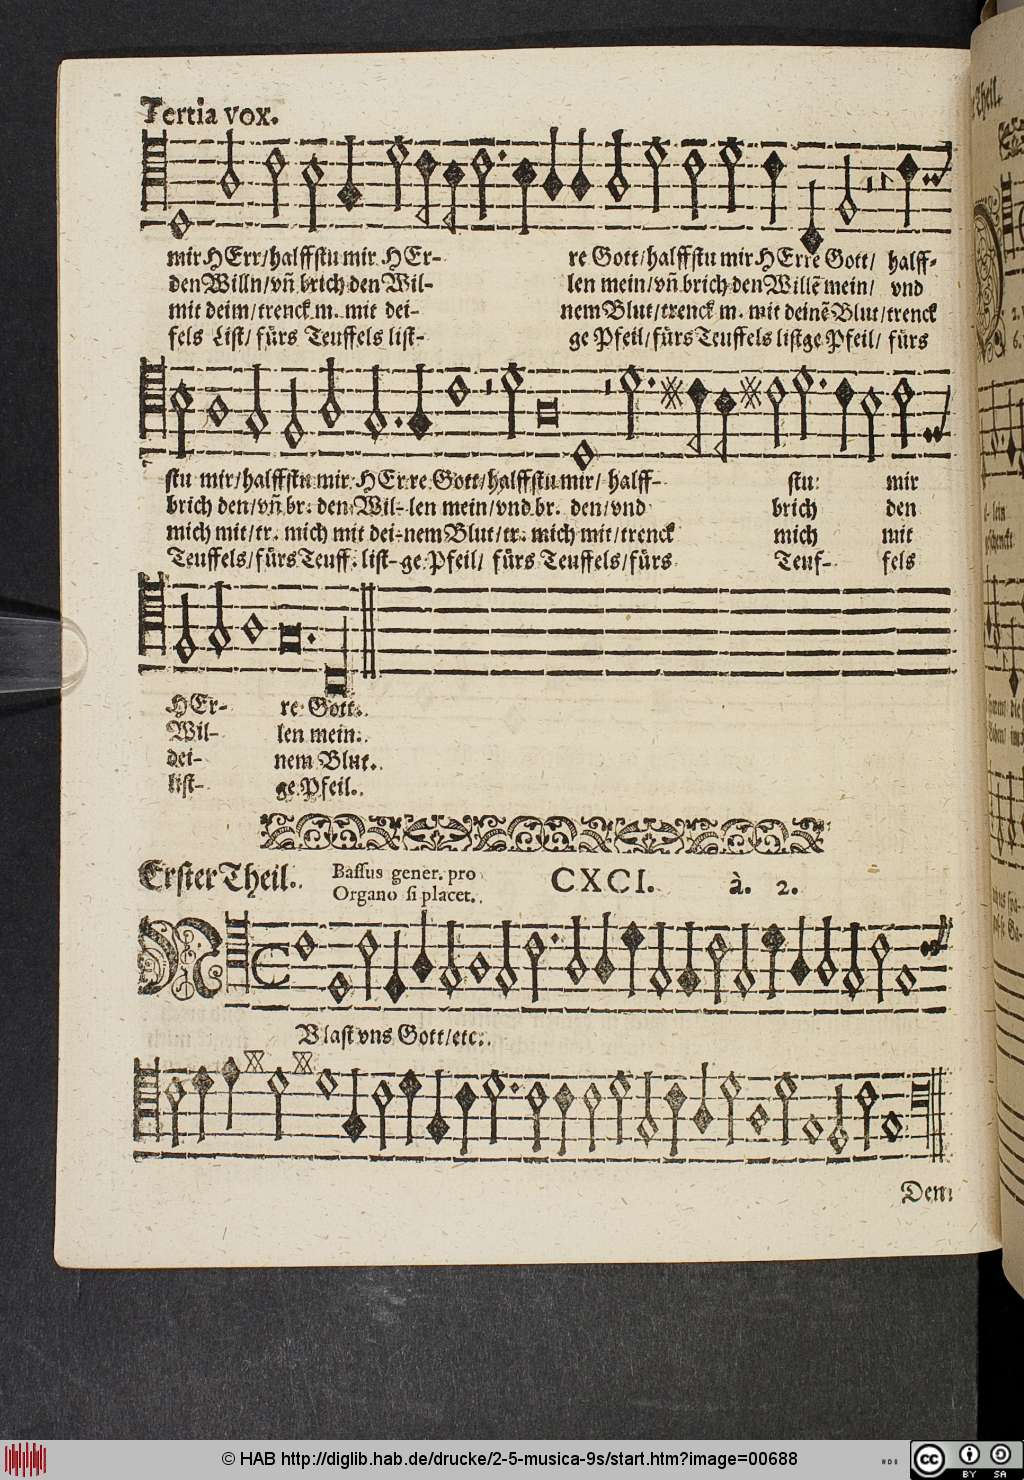 Tertia vox.
mir HErr/halffstu mir HEr- re Gott/halffstu mir HErre Gott/ halff-
den Willn/vñ brich den Wil- len mein/vñ brich den Willẽ mein/ vnd
mit deim/trenck m. mit dei- nem Blut/trenck m. mit deinẽ Blut/trenck
fels List/ fürs Teuffels list- ge Pfeil/fürs Teuffels listge Pfeil/ fürs
stu mir/halffstu mir HErre Gott/halffstu mir/ halff- stu mir
brich den/vñ br. den Wil-len mein/vnd br. den/vnd brich den
mich mit/tr. mich mit dei-nem Blut/tr. mich mit/trenck mich mit
Teuffels/fürs Teuff. list-ge Pfeil/ fürs Teuffels/fürs Teuf- fels
HEr- re Gott.
Wil- len mein.
dei- nem Blut.
list- ge Pfeil.
Erster Theil. Bassus gener. pro CXCI. à. 2.
Organo si placet.
NVlast vns Gott/etc.
Den
© HAB http://diglib.hab.de/drucke/2-5-musica-9s/start.htm?image=00688
cc BY SA